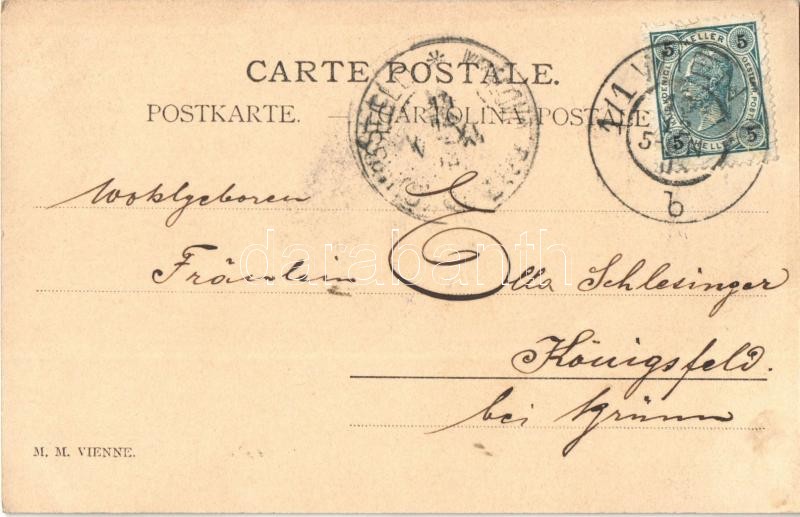 CARTE POSTALE.
POSTKARTE. — CARTOLINA POSTALE
Wohlgeboren
Fräulein Ella Schlesinger
Königsfeld.
bei Brünn
M. M. VIENNE.
5 HELLER 5
5 HELLER 5
1/1
b
darabanth